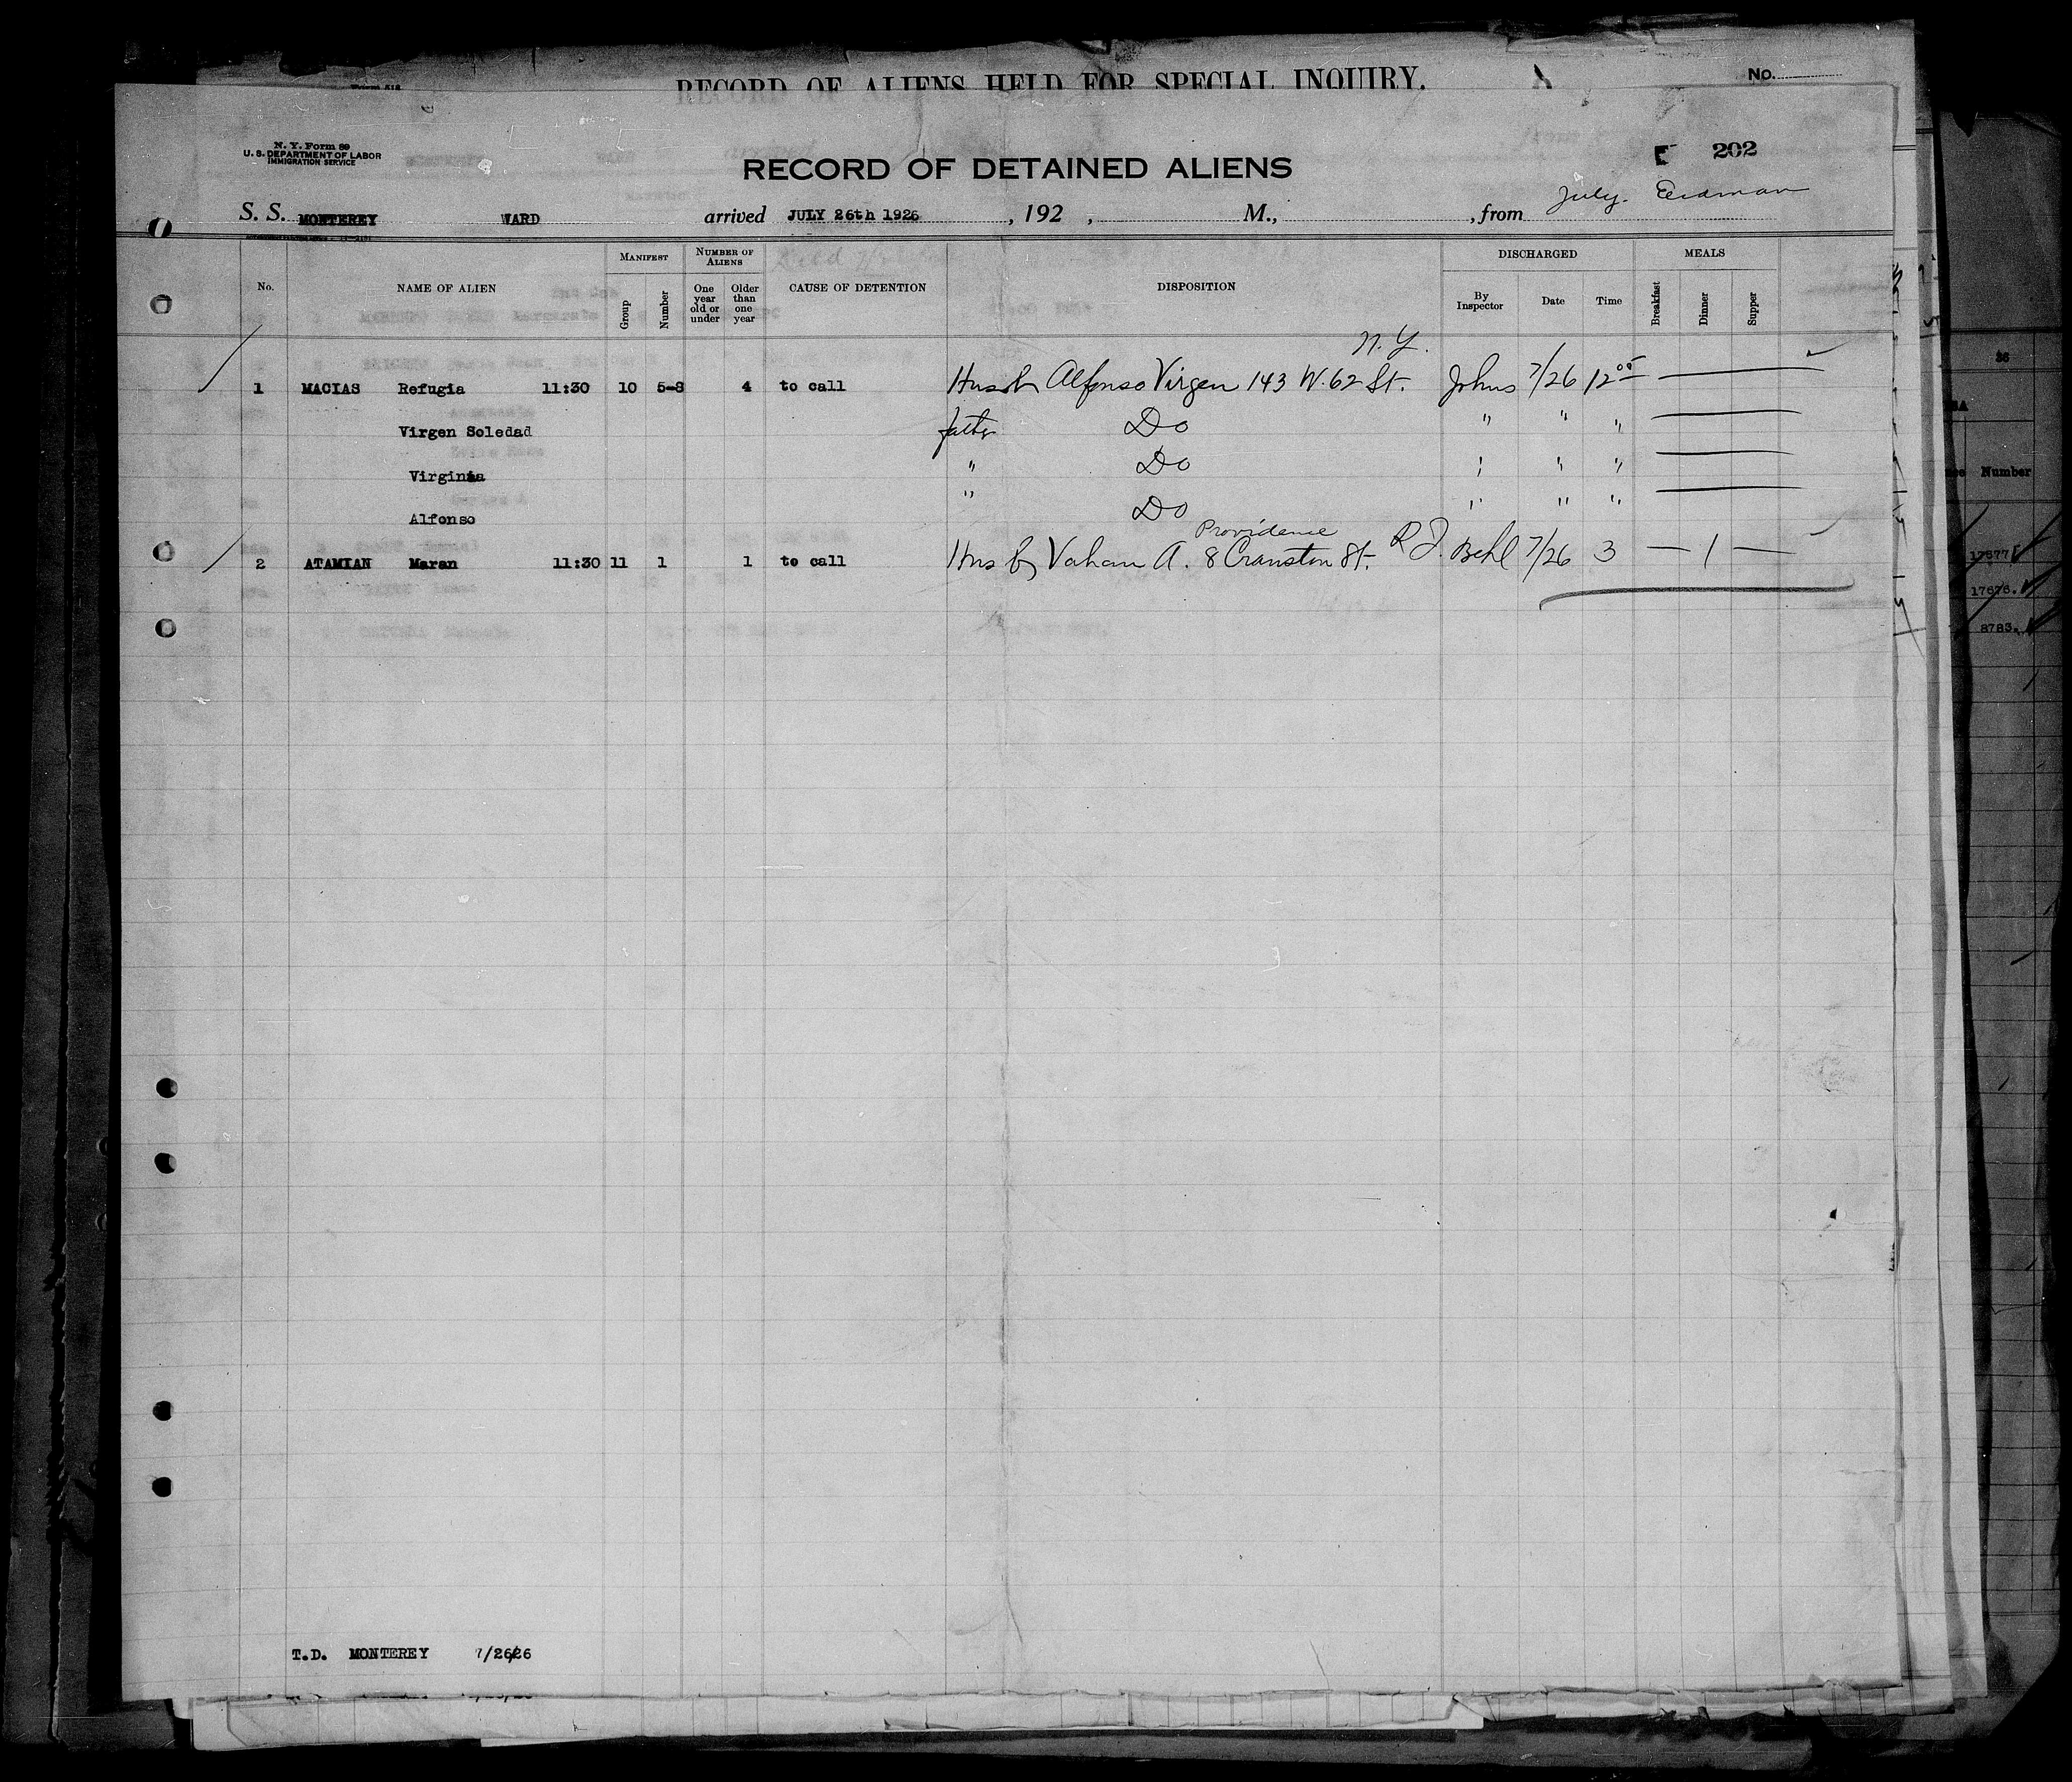 RECORD OF ALIENS HELD FOR SPECIAL INQUIRY. No.
N. Y. Form 89
U. S. DEPARTMENT OF LABOR
IMMIGRATION SERVICE
RECORD OF DETAINED ALIENS
202
S. S. MONTEREY WARD arrived JULY 26th 1926, 192 , M., , from July. Erdman
No. NAME OF ALIEN MANIFEST Group Number NUMBER OF ALIENS One year old or under Older than one year CAUSE OF DETENTION DISPOSITION DISCHARGED By Inspector Date Time MEALS Breakfast Dinner Supper
N.Y.
1 MACIAS Refugia 11:30 10 5-8 4 to call Husb Alfonso Virgen 143 W. 62 St. Johns 7/26 12 00
Virgen Soledad father Do " " "
Virginia " Do " " "
Alfonso " Do " " "
Providence
2 ATAMIAN Maran 11:30 11 1 1 to call Husb Vahan A. 8 Cranston St. R.I. Behl 7/26 3 — 1 —
T.D. MONTEREY 7/26/26
36
Number
17677
17678.
8783.